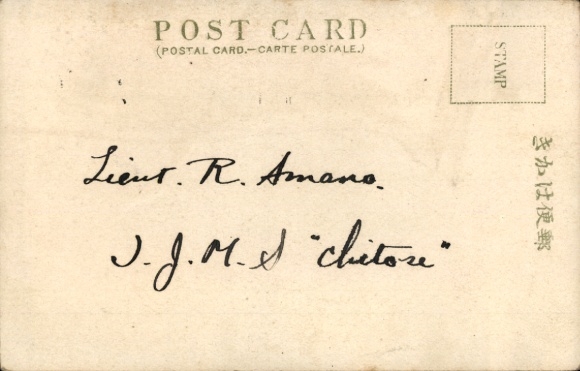 POST CARD
(POSTAL CARD.—CARTE POSTALE.)
STAMP
きかは便郵
Lieut. R. Amano.
I. J. M. S "Chitose"